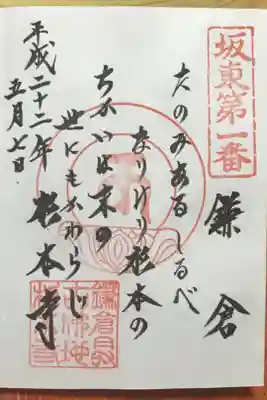 坂東第一番
鎌倉
たのみある しるべ
なりけり杉本の
ちかいは末の
世にもかわらじ
杉本寺
平成二十二年
五月七日
鎌倉最
古佛地